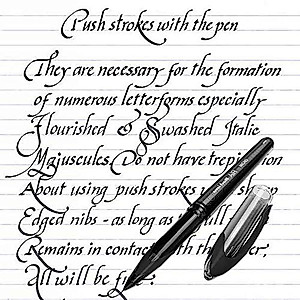 Push strokes with the pen
They are necessary for the formation
of numerous letterforms especially
Flourished & Swashed Italic
Majuscules. Do not have trepidation
About using push strokes
Edged nibs - as long as
Remains in contact with the
All will be fine.